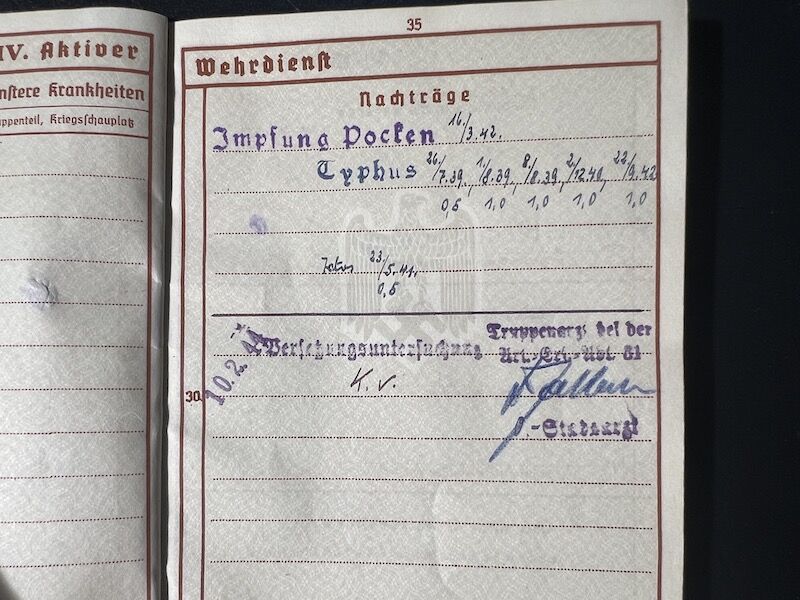 IV. Aktiver
nstere Krankheiten
uppenteil, Kriegsschauplatz
35
Wehrdienst
Nachträge
Impfung Pocken 16./3.42.
Typhus 26./7.39., 1./8.39., 8./8.39., 2./12.40, 22./9.42
0,5 1,0 1,0 1,0 1,0
23./5.41.
0,5
10.2.44 Versetzungsuntersuchung
Truppenarzt bei der
Art.-Ers.-Abt. 61
30. K.v.
-Stabsarzt